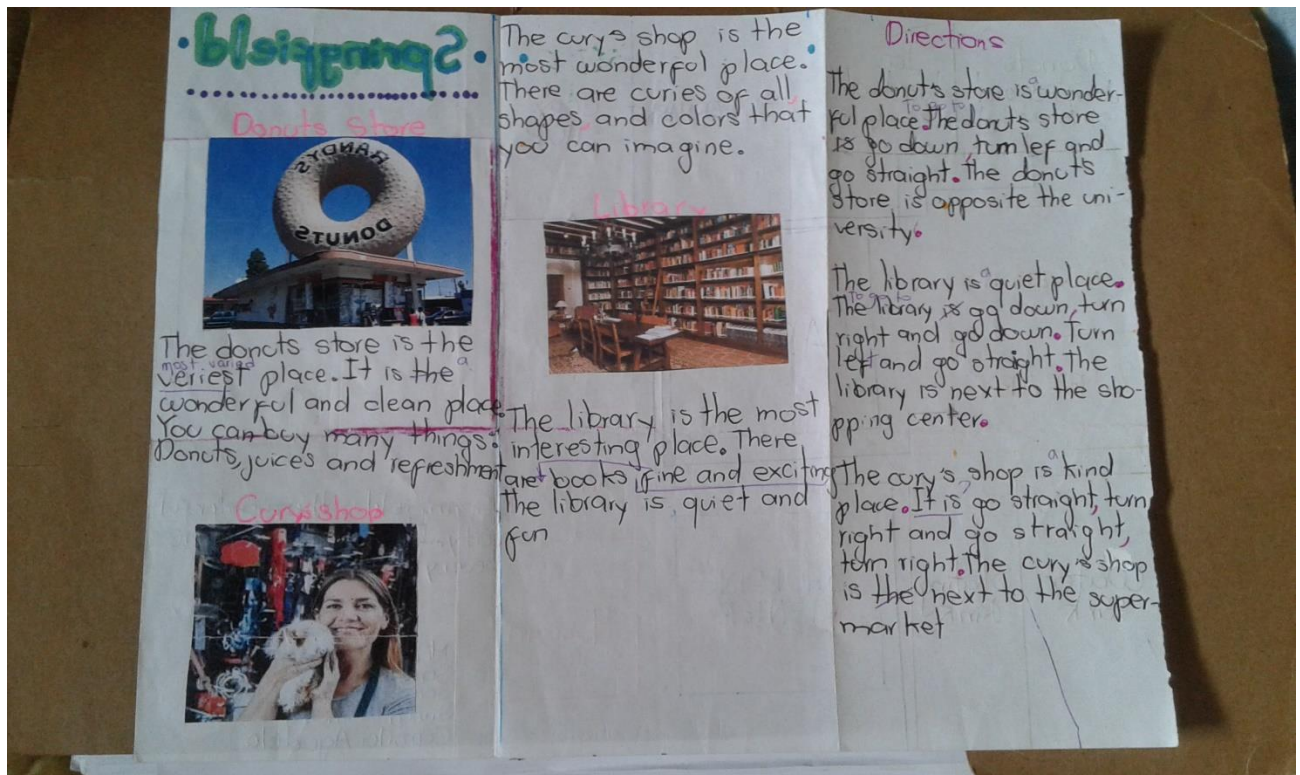 Springfield
Donuts Store
RANDY'S
DONUTS
The donuts store is the
most varied
veriest place. It is the a
wonderful and clean place.
You can buy many things:
Donuts, juices and refreshment
Cury's shop
The cury's shop is the
most wonderful place.
There are curies of all
shapes and colors that
you can imagine.
Library
The library is the most
interesting place. There
are books, fine and exciting
The library is quiet and
fun
Directions
The donuts store is a wonder-
ful place. To go to The donuts store
is go down, turn lef and
go straight. The donuts
store is opposite the uni-
versity.
The library is a quiet place.
To go to
The library, is go down, turn
right and go down. Turn
left and go straight. The
library is next to the sho-
pping center.
The cury's shop is a kind
place. It is go straight, turn
right and go straight,
turn right. The cury's shop
is the next to the super-
market